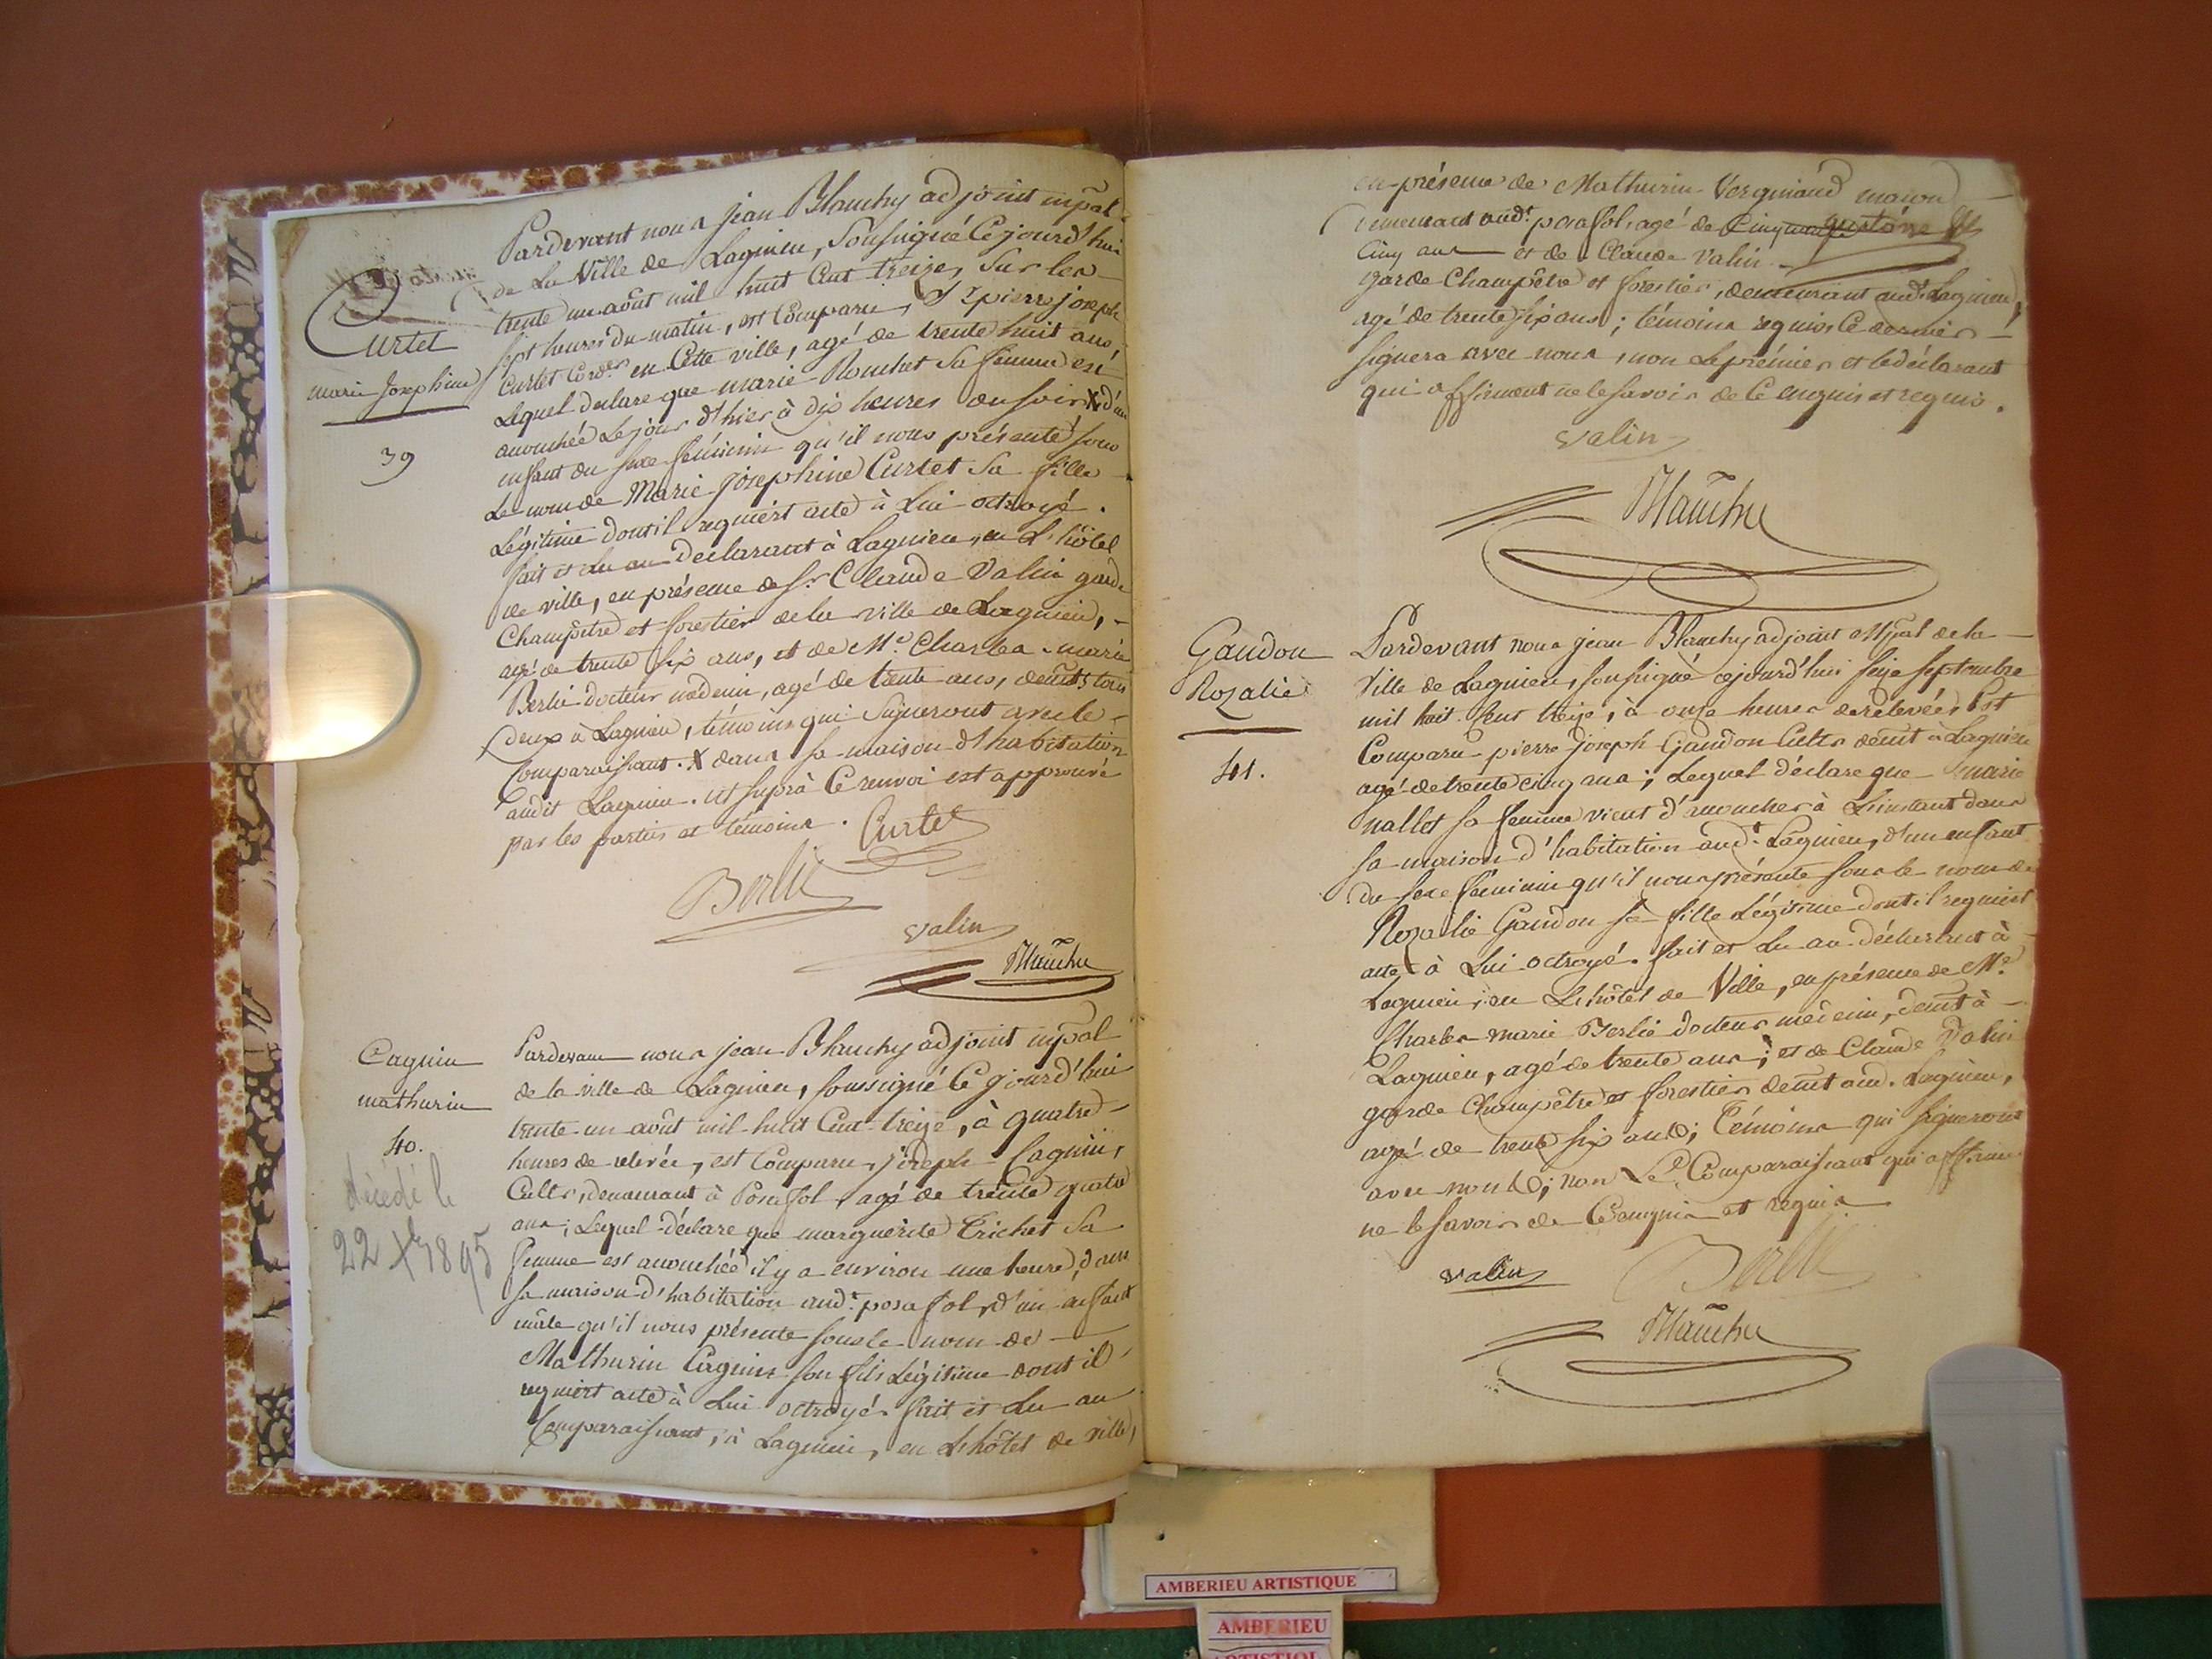 Curtet
marie Josephine
39
Pardevant nous jean Blanchy adjoint mpal
de La Ville de Lagnieu, Soussigné Cejourd'hui
trente un août mil huit Cent treize, Sur les
sept heures du matin, est Comparu, Sr. pierre joseph
Curtet Cord.er en Cette ville, agé de trente huit ans,
Lequel declare que marie Rouchet Sa femme est
accouchée Le jour d'hier à dix heures du soir X d'un
enfant du sexe féminin qu'il nous présente sous
Le nom de Marie Josephine Curtet Sa fille
Légitime dont il requiert acte à Lui octroyé.
fait et Lu au Declarant à Lagnieu, en L'hôtel
de ville, en présence de Sr. Claude Valin garde
Champêtre et forestier de la ville de Lagnieu,
agé de trente six ans, et de Me. Charles marie
Berlié docteur médecin, agé de trente ans, demts. tous
deux à Lagnieu, témoins qui Signeront avec le
Comparaissant. X dans sa maison d'habitation
audit Lagnieu. ut suprà Ce renvoi est approuvé
par les parties et témoins. Curtet
Berlié
Valin
Blanchy
Cagnin
mathurin
40.
décédé le
22 Xbre 1895
Pardevant nous jean Blanchy adjoint mpal
de la ville de Lagnieu, soussigné Cejourd'hui
trente-un août mil-huit Cent-treize, à quatre
heures de relevée, est Comparu, joseph Cagnin,
Cultr., demeurant à Posafol, agé de trente quatre
ans; Lequel déclare que marguerite Trichet Sa
femme est accouchée il y a environ une heure, dans
sa maison d'habitation audt. posafol, d'un enfant
mâle qu'il nous présente sous le nom de
Mathurin Cagnin son fils Légitime dont il
requiert acte à Lui octroyé. fait et Lu au
Comparaissant, à Lagnieu, en L'hôtel de ville,
en présence de Mathurin Vergniaud maçon
demeurant audt. posafol, agé de
Cinq ans et de Claude Valin
garde Champêtre et forestier, demeurant audt. Lagnieu,
agé de trente six ans; témoins requis Ce dernier
signera avec nous, non Le prémier et le déclarant
qui affirment ne le savoir de Ce enquis et requis.
Valin
Blanchy
Gaudon
Rozalie
41.
Pardevant nous jean Blanchy adjoint Mpal de la
Ville de Lagnieu, soussigné cejourd'hui seize septembre
mil huit Cent treize, à onze heures de relevée, Est
Comparu pierre Joseph Gaudon Cultr. demt à Lagnieu
agé de trente cinq ans; Lequel déclare que marie
nallet sa femme vient d'accoucher à L'instant dans
sa maison d'habitation audt. Lagnieu, d'un enfant
du sexe féminin qu'il nous présente sous le nom de
Rozalie Gaudon sa fille Légitime dont il requiert
acte à Lui octroyé. fait et Lu au déclarant à
Lagnieu, en L'hôtel de Ville, en présence de Me.
Charles marie Berlié docteur médecin, demt à
Lagnieu, agé de trente ans; et de Claude Valin
garde Champêtre et forestier demt aud. Lagnieu,
agé de trente six ans; Témoins qui signeront
avec nous; non Le Comparaissant qui affirme
ne le savoir de Ce enquis et requis
Valin
Berlié
Blanchy
AMBERIEU ARTISTIQUE
AMBERIEU